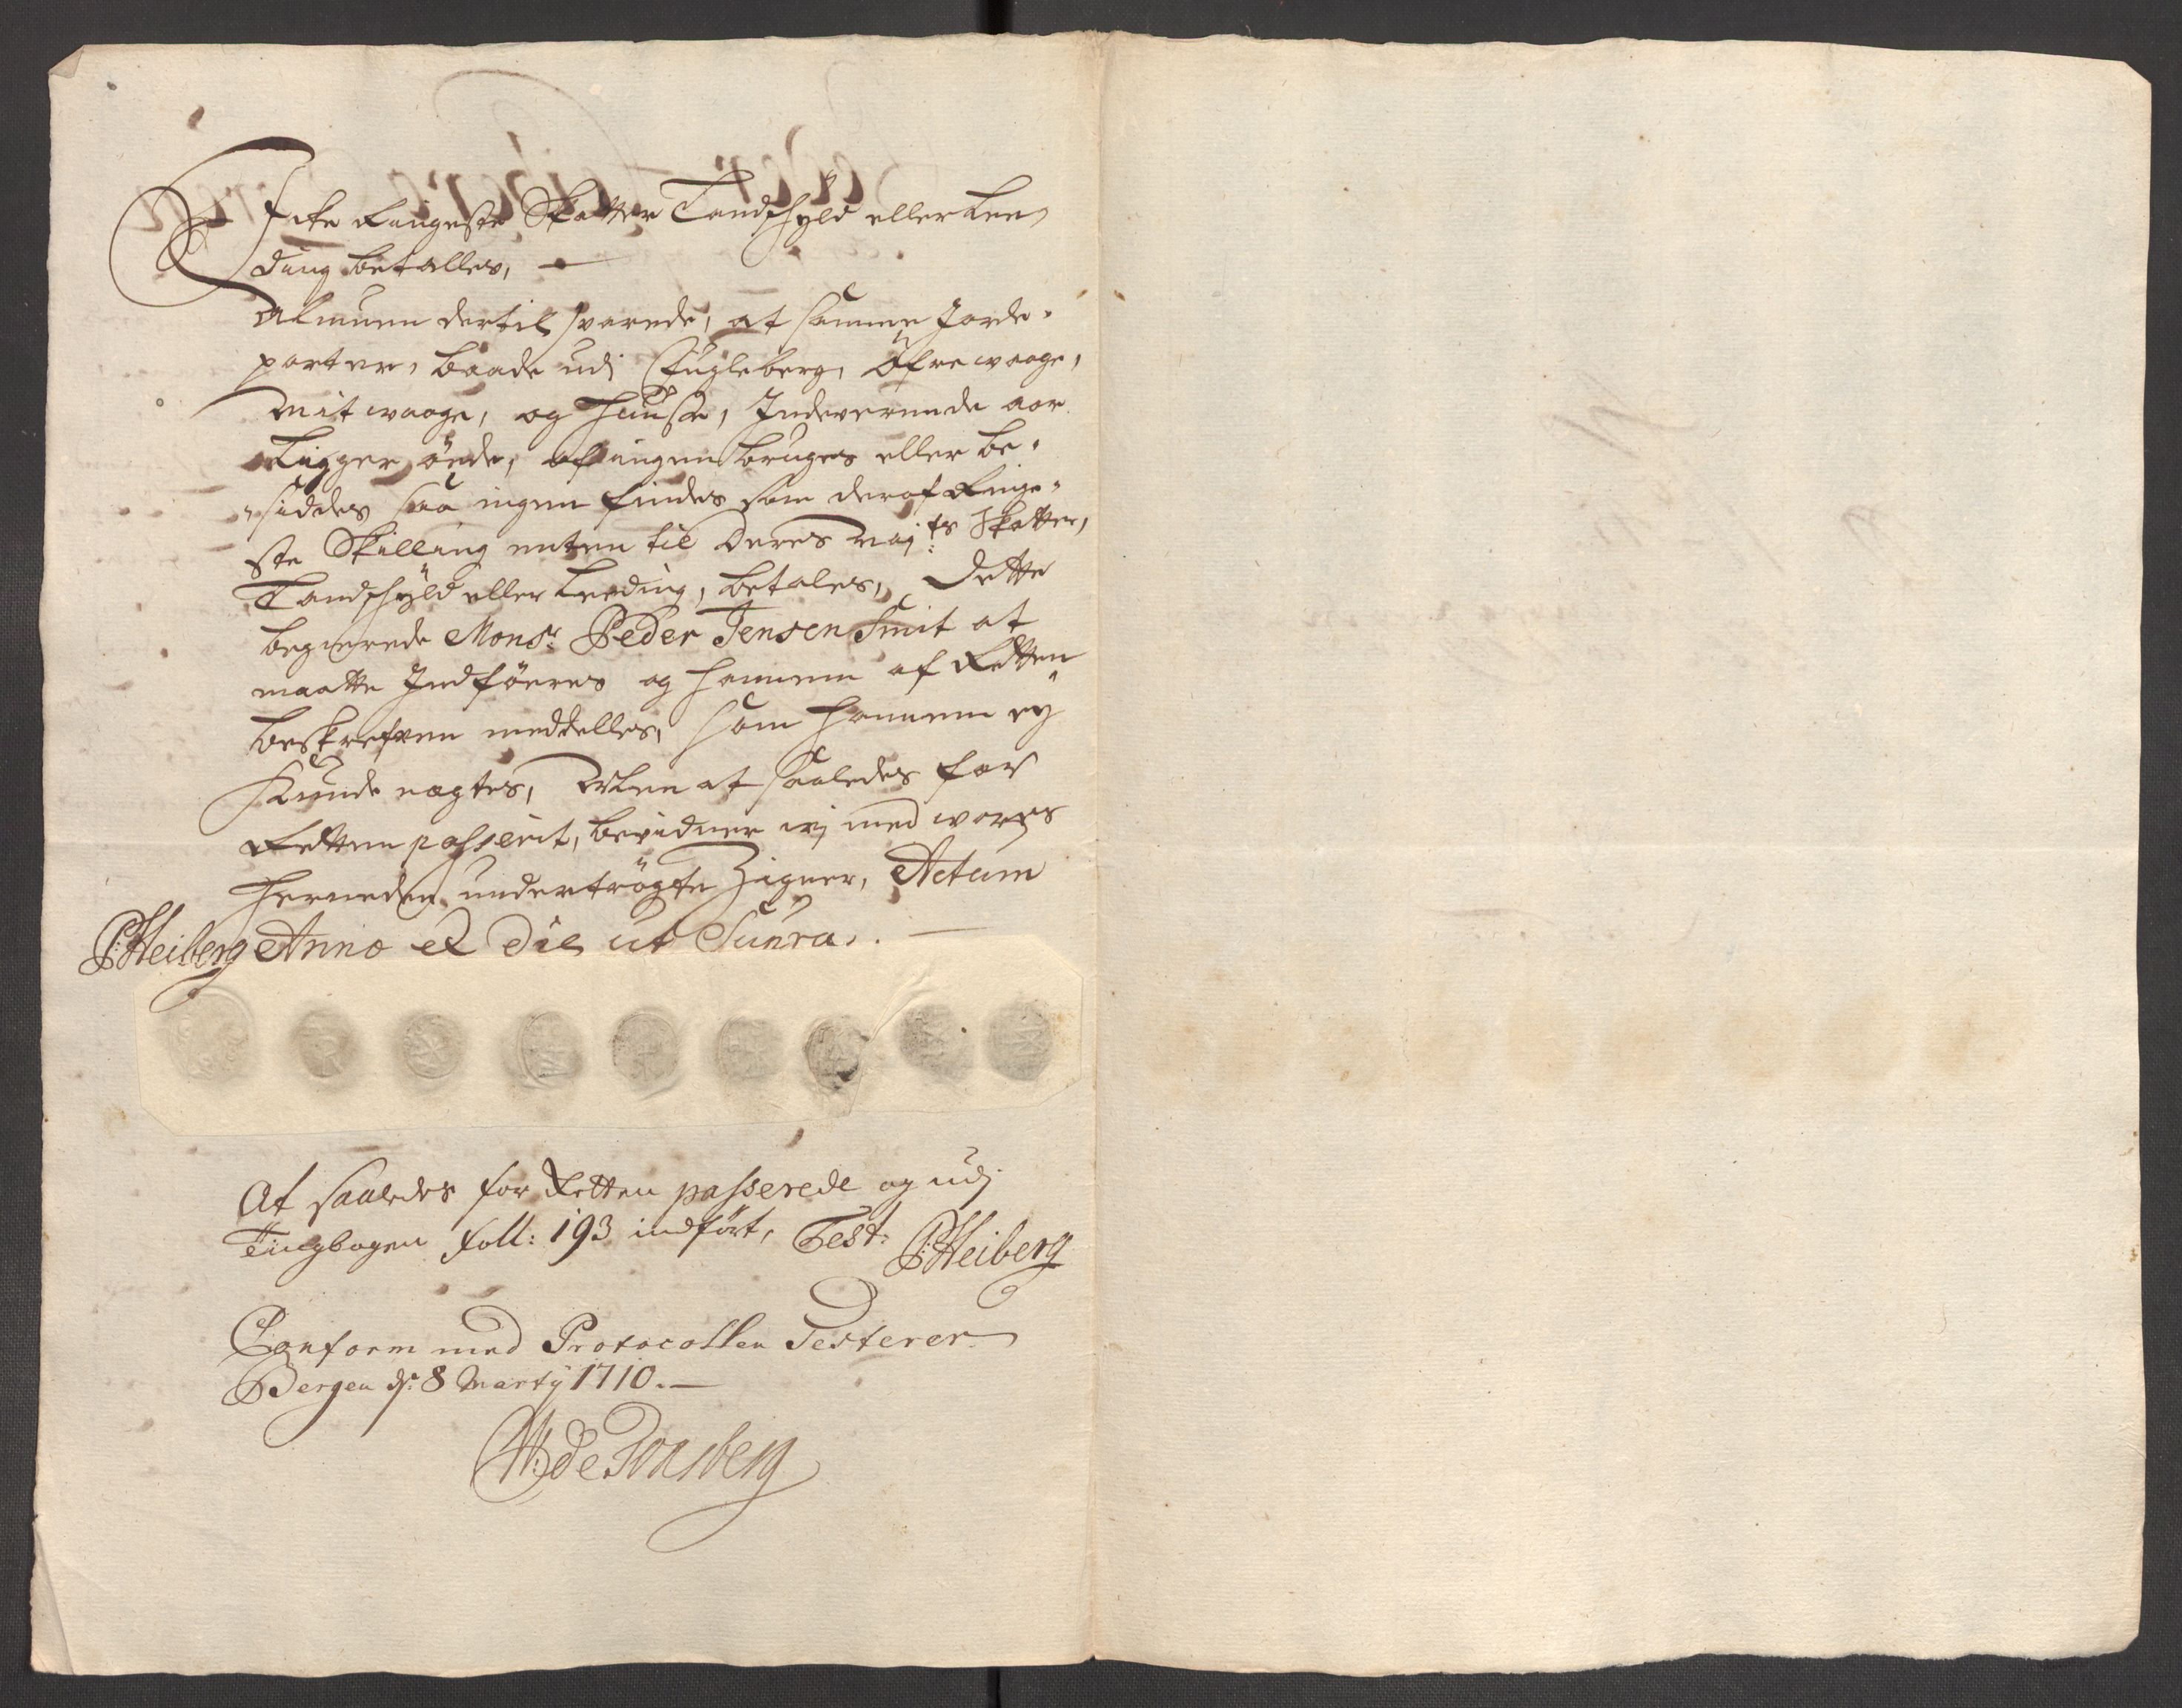 Icke Ringeste Skatter Landschyld eller Lee
ding betalles,
Almuen dertil svarede, at samme Jorde-
parter, baade udj Fugleberg, Öfre waage,
Mit waage, og Hausse, Indeverende aar
Ligger öede, af ingen bruges eller be-
siddes saa ingen findes som deraf Ringe-
ste Skilling enten til Deres May:ts Skatter,
Landschyld eller Leeding, betales, Dette
begierede Monsr: Peder Jensen Smit at
maatte Indföeres og hannem af Retten
beskrefven meddelles, som hannem ey
Kunde nægtes, at saaledes for
Retten passerit, bevidner wj med wores
herneden undertrögte Zigner, Actum
P:Heiberg Anno et Die ut Supra.
At saaledes for Retten passerede og udj
Tingbogen foll: 193 indfört, Test: P:Heiberg
Conform med Protocollen Testerer
Bergen ds: 8 Marty 1710.